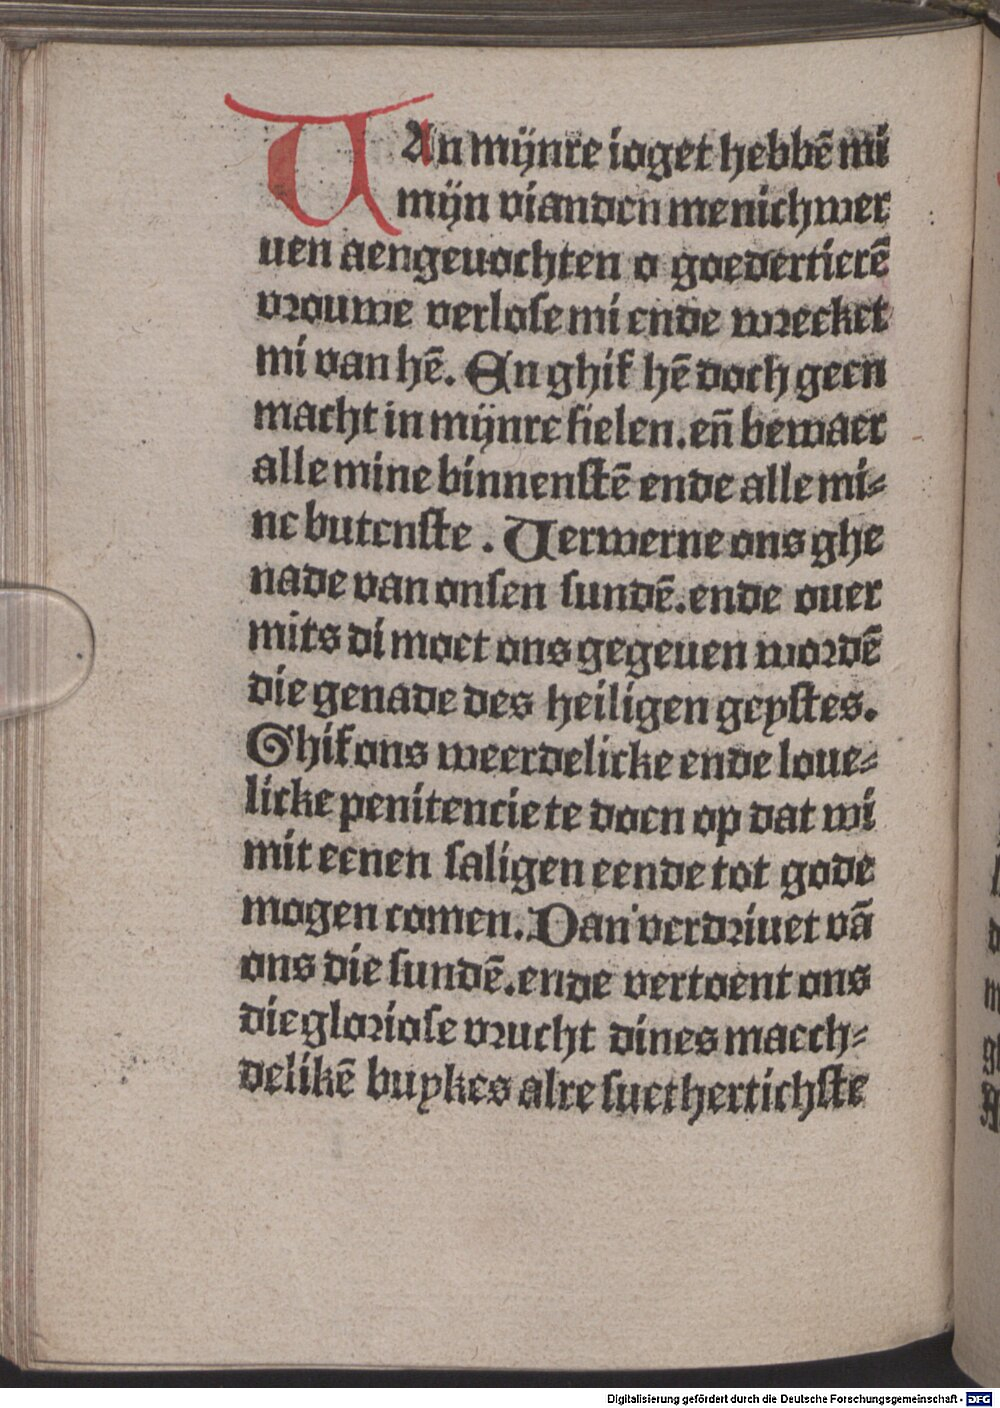 VAn mijnre ioget hebbē mi
mijn vianden menichwer
uen aengeuochten o goedertierē
vrouwe verlose mi ende wrecket
mi van hē. En ghif hē doch geen
macht in mijnre sielen. eñ bewaer
alle mine binnenstē ende alle mi-
ne butenste. Verwerne ons ghe
nade van onsen sundē. ende ouer
mits di moet ons gegeuen wordē
die genade des heiligen geystes.
Ghif ons weerdelicke ende loue-
licke penitencie te doen op dat wi
mit eenen saligen eende tot gode
mogen comen. Dan verdriuet vā
ons die sundē. ende vertoent ons
die gloriose vrucht dines maech-
delikē buykes alre suethertichste
Digitalisierung gefördert durch die Deutsche Forschungsgemeinschaft - DFG